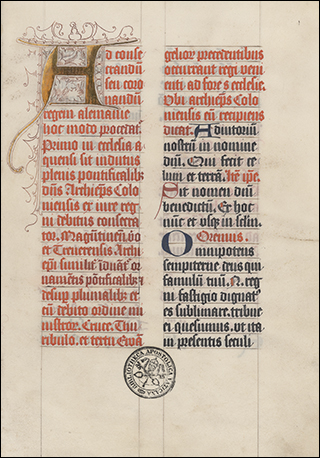 Ad conse
crandū
seu coro
nandū
regem alemanie
hoc modo procedat.
Primo in ecclesia a
quensi sit indutus
plenis pontificalibꝫ
dn̄s Archiep̄s Colo
niensis et iure regni
debitus consecra
tor. Maguntinen̄
et Treuerensis. Archi
ep̄i
ornamētis pontificalibꝫ
desup pluuialibꝫ et
cū debito ordine mi
nistror̄. Cruce. Thu
ribulo. et textu Euā
gelior̄ precedentibus
occurrant regi veni
enti ad fores ecclesie.
Vbi archiep̄s Colo
niensis eū recipiens
dicat. Adiutorium
nostrū in nomine
dn̄i. Qui fecit ce
lum et terrā.
Sit nomen dn̄i
benedictū. Ex hoc
nūc et vsqꝫ in sclm̄.
Oremus.
Omnipotens
sempiterne deus qui
famulū tuū .N. regni
fastigio dignat9
es sublimare. tribue
ei quesumus. vt ita
in presentis seculi
BIBLIOTHECA APOSTOLICA VATICANA